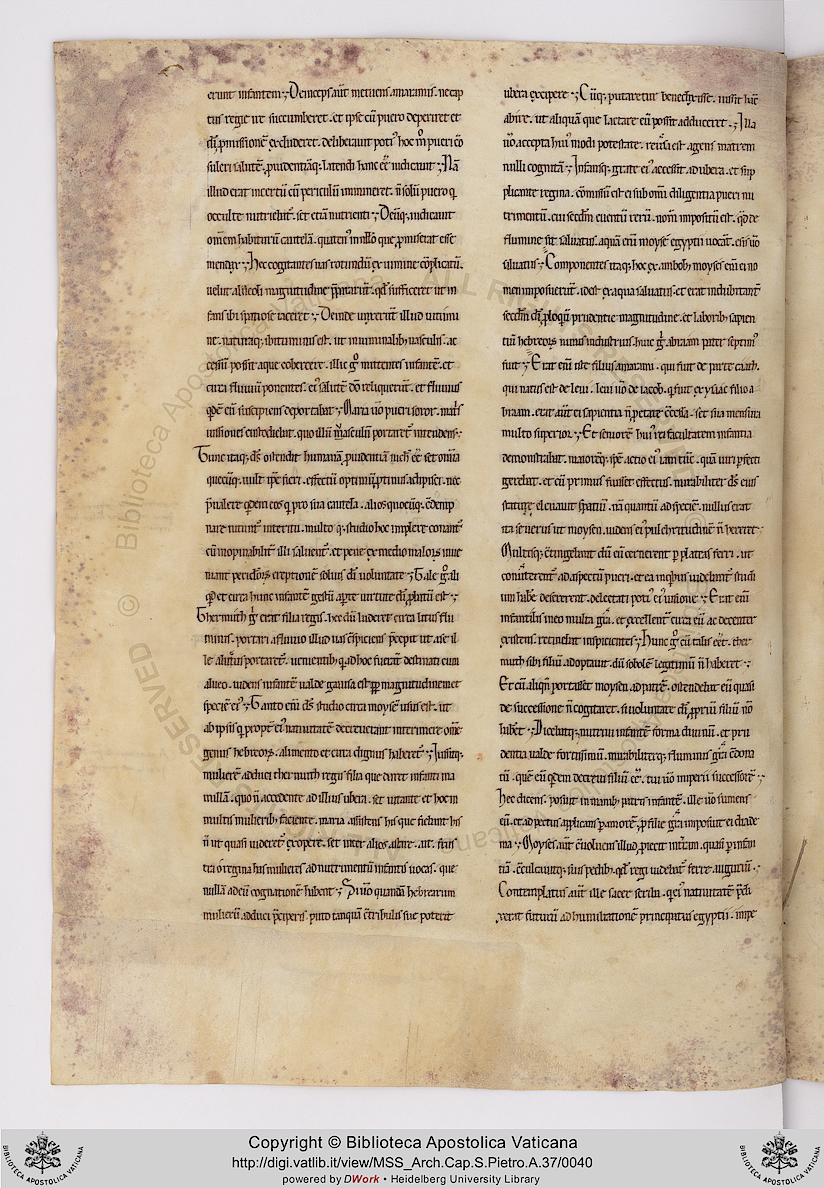 erunt infantem. Deinceps aut metuens amaramis. ne cap
tus regie ire succumberet. et ipse cu puero deperiret et
di pmissione excluderet. deliberauit poti hoc m pueri co
suleri salute. puidentiaq. latendi hanc ee iudicauit. Na
illud erat incertu cu periculu immineret. n solu puero q
occulte nutriebat. set etia nutrienti. Deniq. iudicauit
omem habituru cautela. quaten nullo que pmiserat esse
mendax. Hec cogitantes uas rotundu ex uimine coplicatu.
uelut alueoli magnitudine pparatu. qd sufficeret ut in
fans ibi spatiose iaceret. Deinde unxerut illud bitumi
ne. naturaq. bituminis est. ut in uiminalib uasculis. ac
cessu possit aque cohercere. illic g mittentes infante. et
circa fluuiu ponentes. ei salute do reliquerut. et fluuius
qde eu suscipiens deportabat. Maria uo pueri soror. matris
iussiones custodiebat. quo illu uasculu portaret intendens.
Tunc itaq. ds ostendit humana puidentia nichil ee. set omia
quecuq. uult ipe fieri. effectu optimu ptinus adipisci. nec
pualere qdem eos q pro sua cautela. alios quocuq. codemp
nare nitunt interitu. multo q. studio hoc implere conant.
cu inopinabilit illi saluent. et pene ex medio malor inue
niant periclor ereptione solius di uoluntate. Tale g ali
qd et circa hunc infante gestu apte uirtute di pbatu est.
Thermuth g erat filia regis. hec du luderet circa litus flu
minis. portari a fluuio illud uas cspiciens pcepit ut a se il
le alueus portaret. uenientib q. ad hoc fuerat destinati cum
alueo. uidens infante ualde gauisa est pp magnitudine et
specie ei. Tanto eni ds studio circa moyse usus est. ut
ab ipsis q propt ei natiuitate decreuerant interimere ome
genus hebreor. alimento et cura dignus haberet. Iussitq.
muliere adduci thermuth regis filia que daret infanti ma
milla. quo n accedente ad illius ubera. set uitante et hoc in
multis mulierib faciente. maria assistens his que fiebant his
n ut quasi uideret ex opere. set inter alios astare. ait. frus
tra o regina has mulieres ad nutrimentu infantis uocas. que
nulla ad eu cognatione habent. Si uo quanda hebrearum
mulieru adduci peperis. puto tanqua ctribulis sue poterit
ubera excipere. Cuq. putaretur bene dixisse. iussit hic
abire. ut aliqua que lactare eu possit adduceret. Illa
uo accepta hui modi potestate. reuersa est agens matrem
nulli cognita. Infansq. grate ei accessit ad ubera. et sup
plicante regina. comissum est ei sub omi diligentia pueri nu
trimentu. cui scdm euentu reru. nom impositu est. qd de
flumine sit saluatus. aqua eni moyse egyptii uocat. eiss uo
saluatus. Componentes itaq. hoc ex ambob. moyses eni ei no
men imposuerut. id est ex aqua saluatus. et erat indubitant
scdm di ploquiu prudentie magnitudine. et laborib sapien
tiu hebreor nimis industrius. hunc g abraam pater septim
fuit. Erat eni iste filius amarami. qui fuit de patre caath.
qui natus est de leui. leui uo de iacob. q fuit ex ysaac filio a
braam. erat aut ei sapientia n p etate ccessa. set sua mensura
multo superior. Et seniore hui rei facultatem infantia
demonstrabat. maioreq. spe actio ei iam tuc. qua uiri pfecti
gerebat. et cu primus fuisset effectus. mirabiliter ds eius
stature eleuauit spatiu. na quantu ad specie. nullus erat
ita seuerus ut moysen. uidens ei pulchritudine n hereret.
Multisq. ctingebant du eu cernerent p plateas ferri. ut
couterent ad aspectu pueri. et ea in quib uidebant studi
um habe desererent. delectati poti ei uisione. Erat eni
infantilis in eo multa gra. et excellent circa eu ac decenter
existens. retinebat inspicientes. Hunc g cu talis eet. ther
muth sibi filiu adoptauit. du sobole legitimu n haberet.
Et cu aliqn portasset moysen ad patre. ostendebat eu quasi
de successione n cogitaret. si uoluntate di ppriu filiu no
habet. Dicebatq. nutriui infante forma diuinu. et pru
dentia ualde fortissimu. mirabiliterq. fluminis gra edona
tu. que eu qdem decreui filiu ee. tui uo imperii successore.
Hec dicens. posuit in manib. patris infante. ille uo sumens
eu. et ad pectus applicans p amore. p filie gra imposuit ei diade
ma. Moyses aut cuoluens illud. piecit in terram. quasi p infan
tia. cculcauitq. suis pedib. qd regi uidebat ferre auguriu.
Contemplatus aut ille sacer scriba. q ei natiuitate pdi
xerat futuru ad humiliatione principatus egyptii. impe
Copyright © Biblioteca Apostolica Vaticana
http://digi.vatlib.it/view/MSS_Arch.Cap.S.Pietro.A.37/0040
powered by DWork • Heidelberg University Library